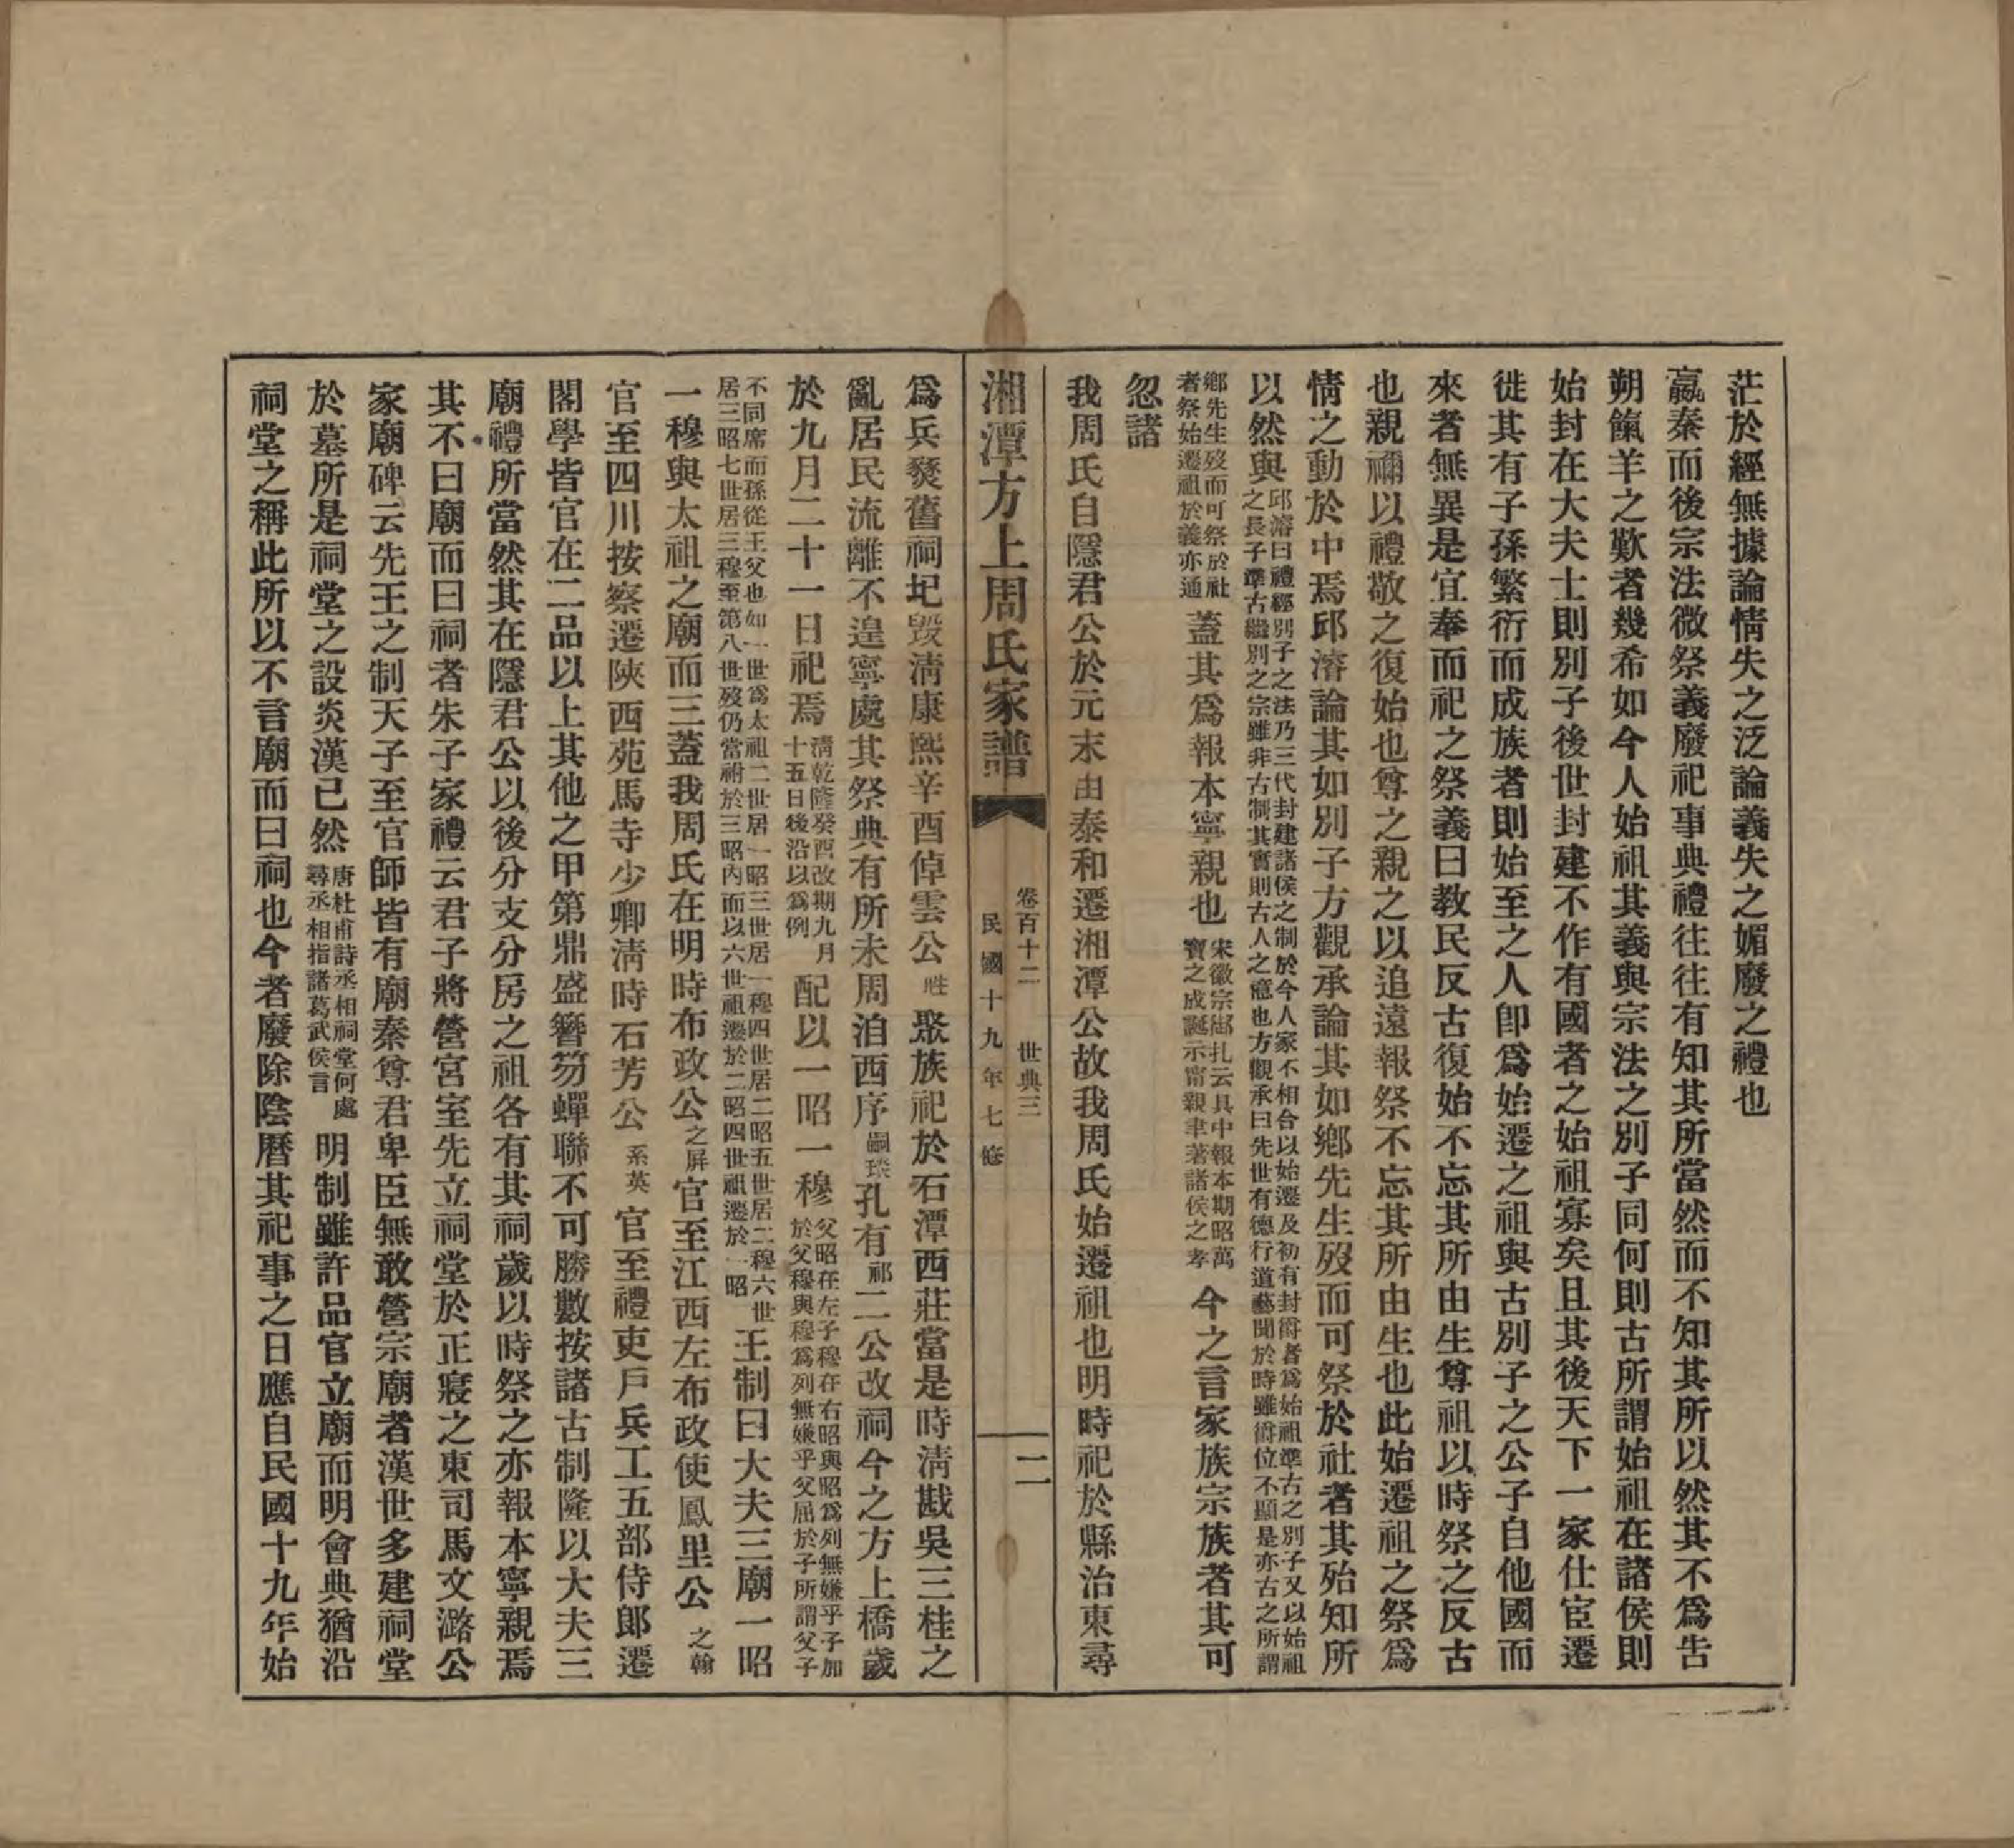 茫於經無據論情失之泛論義失之媚廢之禮也
嬴秦而後宗法微祭義廢祀事典禮往往有知其所當然而不知其所以然其不爲告
朔餼羊之歎者幾希如今人始祖其義與宗法之別子同何則古所謂始祖在諸侯則
始封在大夫士則別子後世封建不作有國者之始祖寡矣且其後天下一家仕宦遷
徙其有子孫繁衍而成族者則始至之人卽爲始遷之祖與古別子之公子自他國而
來者無異是宜奉而祀之祭義曰教民反古復始不忘其所由生尊祖以時祭之反古
也親禰以禮敬之復始也尊之親之以追遠報祭不忘其所由生也此始遷祖之祭爲
情之動於中焉邱濬論其如別子方觀承論其如鄉先生歿而可祭於社者其殆知所
以然與邱濬曰禮經別子之法乃三代封建諸侯之制於今人家不相合以始遷及初有封爵者爲始祖準古之別子又以始祖
之長子準古繼別之宗雖非古制其實則古人之意也方觀承曰先世有德行道藝聞於時雖爵位不顯是亦古之所謂
鄉先生歿而可祭於社
者祭始遷祖於義亦通蓋其爲報本寧親也宋徽宗御扎云具中報本期昭萬
寶之成誕示甯親聿著諸侯之孝今之言家族宗族者其可
忽諸
我周氏自隱君公於元末由泰和遷湘潭公故我周氏始遷祖也明時祀於縣治東尋
湘潭方上周氏家譜 卷百十二 世典三 二
民國十九年七修
爲兵燹舊祠圯毀清康熙辛酉倬雲公甡聚族祀於石潭西莊當是時清戡吳三桂之
亂居民流離不遑寧處其祭典有所未周洎西序嗣琜孔有邴二公改祠今之方上橋歲
於九月二十一日祀焉清乾隆癸酉改期九月
十五日後沿以爲例配以一昭一穆父昭在左子穆在右昭與昭爲列無嫌乎子加
於父穆與穆爲列無嫌乎父屈於子所謂父子
不同席而孫從王父也如一世爲太祖二世居一昭三世居一穆四世居二昭五世居二穆六世
居三昭七世居三穆至第八世歿仍當祔於三昭內而以六世祖遷於二昭四世祖遷於一昭王制曰大夫三廟一昭
一穆與太祖之廟而三蓋我周氏在明時布政公之屏官至江西左布政使鳳里公之翰
官至四川按察遷陝西苑馬寺少卿淸時石芳公系英官至禮吏戶兵工五部侍郎遷
閣學皆官在二品以上其他之甲第鼎盛簪笏蟬聯不可勝數按諸古制隆以大夫三
廟禮所當然其在隱君公以後分支分房之祖各有其祠歲以時祭之亦報本寧親焉
其不曰廟而曰祠者朱子家禮云君子將營宮室先立祠堂於正寢之東司馬文潞公
家廟碑云先王之制天子至官師皆有廟秦尊君卑臣無敢營宗廟者漢世多建祠堂
於墓所是祠堂之設炎漢已然唐杜甫詩丞相祠堂何處
尋丞相指諸葛武侯言明制雖許品官立廟而明會典猶沿
祠堂之稱此所以不言廟而曰祠也今者廢除陰曆其祀事之日應自民國十九年始